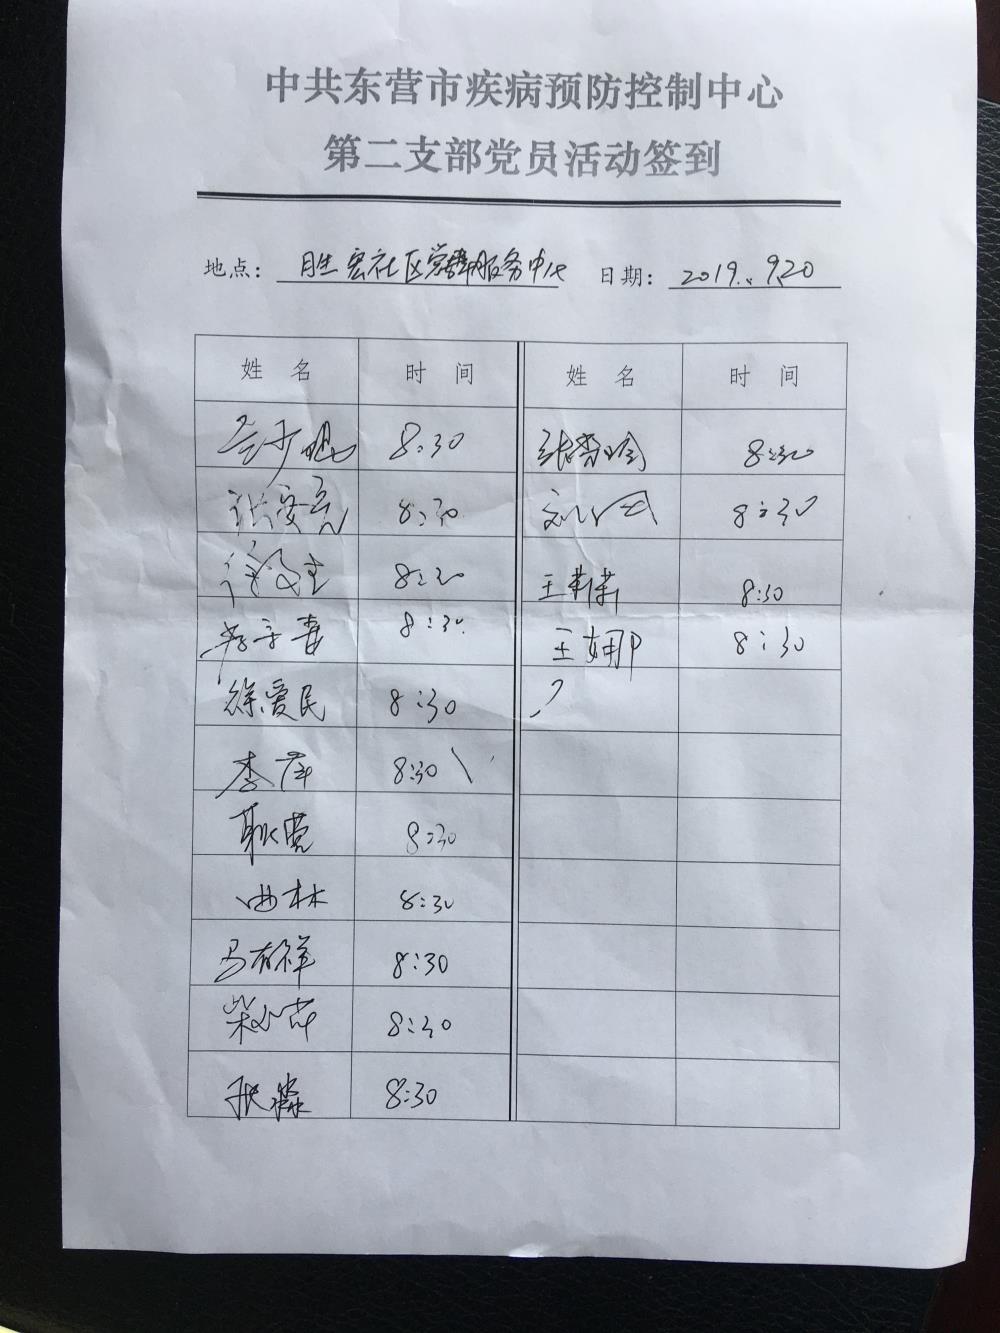 中共东营市疾病预防控制中心
第二支部党员活动签到
地点: 胜宏社区党群服务中心 日期: 2019.9.20
姓 名 时 间 姓 名 时 间
8:30 张香玲 8:30
张安亮 8:30 刘 8:30
8:30 王莉莉 8:30
8:30 王娜 8:30
徐爱民 8:30
李萍 8:30
耿党 8:30
曲林 8:30
马有祥 8:30
柴小萍 8:30
张 8:30